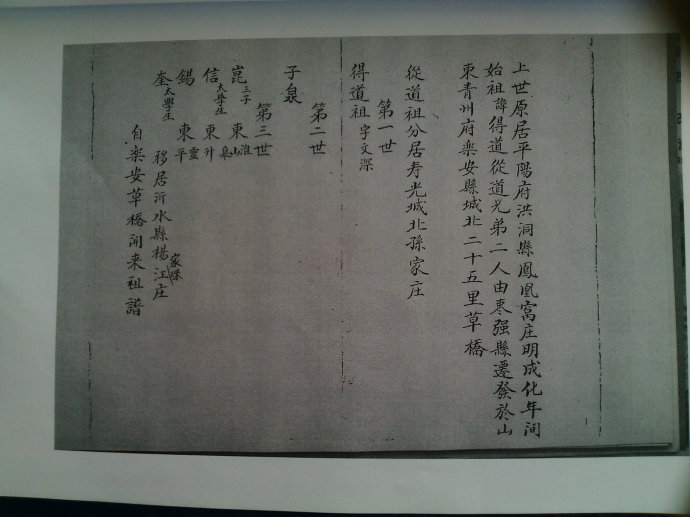 上世原居平陽府洪洞縣鳳凰窩庄明成化年间
始祖諱得道從道兄弟二人由枣强縣遷發於山
東青州府樂安縣城北二十五里草橋
從道祖分居寿光城北孫家庄
第一世
得道祖字文深
第二世
子泉
第三世
崑三子 東山淮泉
信太學生 東升
錫 東平靈
奎太學生 移居沂水縣楊家珠江庄
自樂安草橋闬来祖譜